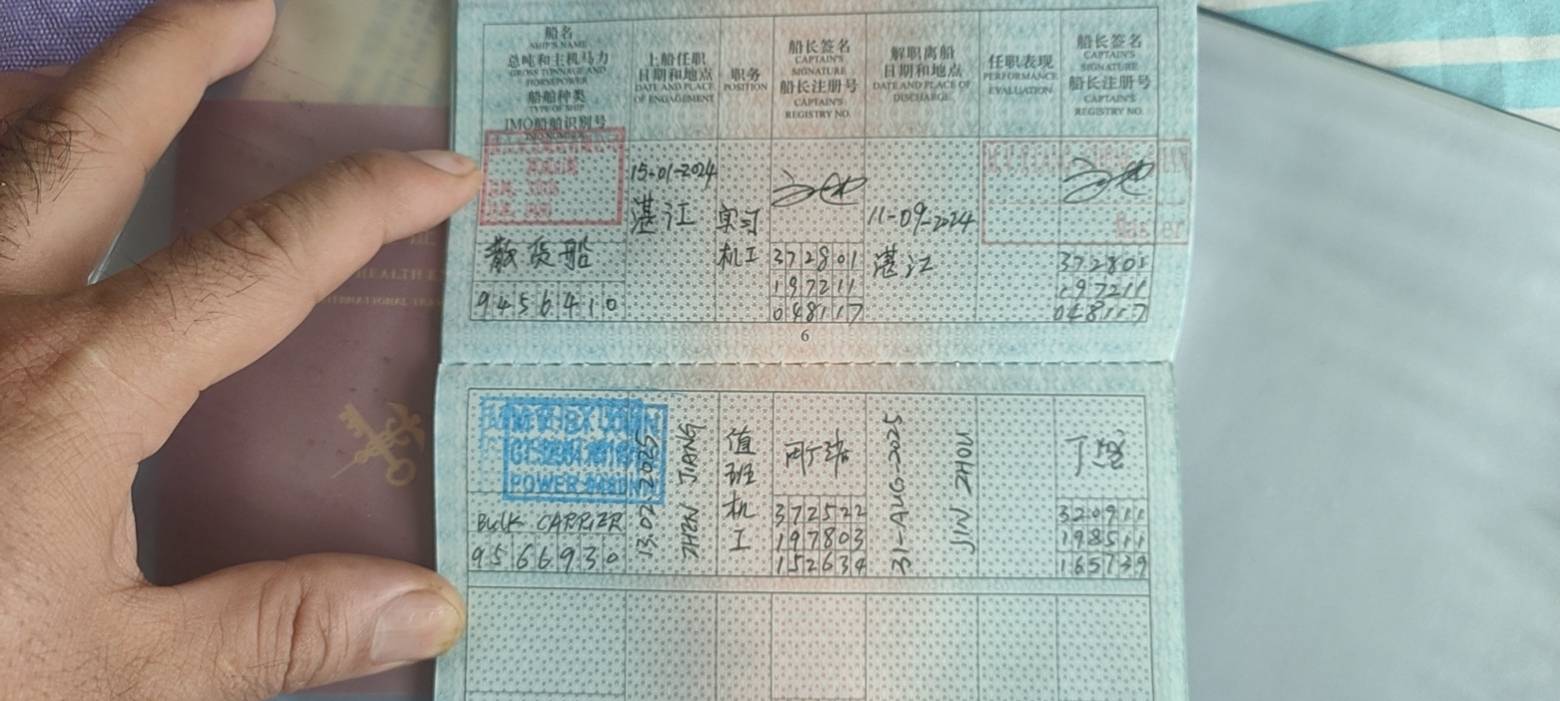 船名
SHIP'S NAME
总吨和主机马力
GROSS TONNAGE AND
HORSEPOWER
船舶种类
TYPE OF SHIP
IMO船舶识别号
上船任职
日期和地点
DATE AND PLACE
OF ENGAGEMENT
职务
POSITION
船长签名
CAPTAIN'S
SIGNATURE
船长注册号
CAPTAIN'S
REGISTRY NO.
解职离船
日期和地点
DATE AND PLACE OF
DISCHARGE
任职表现
PERFORMANCE
EVALUATION
船长签名
CAPTAIN'S
SIGNATURE
船长注册号
CAPTAIN'S
REGISTRY NO.
散货船
9456410
15-01-2024
湛江
实习
机工
372801
197211
048117
11-09-2024
湛江
372801
197211
048117
6
POWER
BULK CARRIER
9566930
13.02 2025
ZHEN JIANG
值
班
机
工
372522
197803
152634
31-AUG-2025
JIN ZHOU
320911
198511
165739